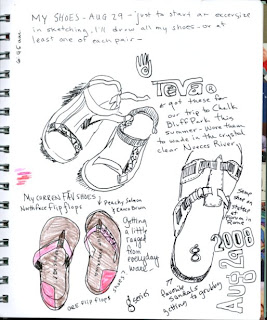 MY SHOES - AUG 29 - just to start an excersize
in sketching, I'll draw all my shoes - or at
least one of each pair -
Teva ®
* got these for
our trip to Chalk
Bluff Park this
summer - wore them
to wade in the crystal
clear Nueces River.
MY CURREN FAV SHOES
Northface Flip flops
↓ Peachy Salmon
& Choco Brown
Getting
a little
ragged
from
everyday
wear
ARE FLIP FLOPS SHOES?
favorite
sandals
getting so grubby
2008
Aug 29